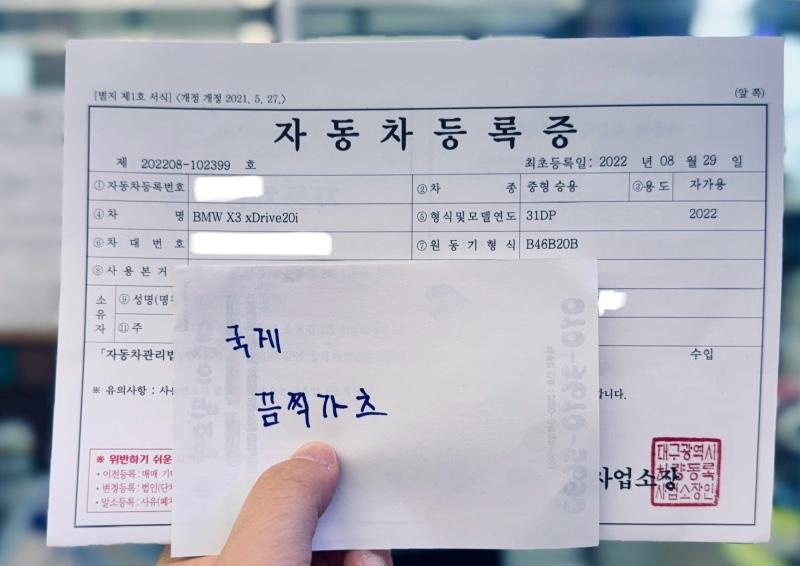 [별지 제1호 서식] <개정 개정 2021. 5. 27.>
(앞 쪽)
자동차등록증
제 202208-102399 호
최초등록일: 2022 년 08 월 29 일
①자동차등록번호
②차 종 중형 승용 ③용 도 자가용
④차 명 BMW X3 xDrive20i ⑤형식및모델연도 31DP 2022
⑥차 대 번 호 ⑦원 동 기 형 식 B46B20B
⑧사 용 본 거
소유자
⑨성명(명
⑪주
「자동차관리법
수입
※ 유의사항 : 사
니다.
국제
끔찍가츠
※ 위반하기 쉬운
• 이전등록: 매매·기
• 변경등록: 법인(단
• 말소등록: 사유(폐
사업소장
대구광역시
차량등록
사업소장인